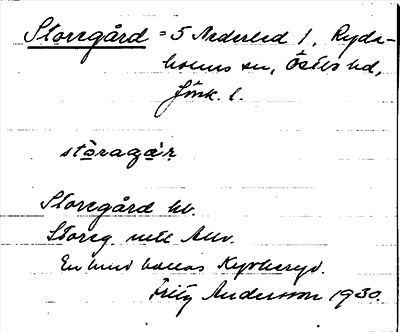 Storegård = 5 Nederled 1, Ryda-
holms sn, Östbo hd,
Jönk. l.
stòragàr
Storegård hb.
Storeg.
En hmd kallas Kyrkeryd.
Fritz Andersson 1930.